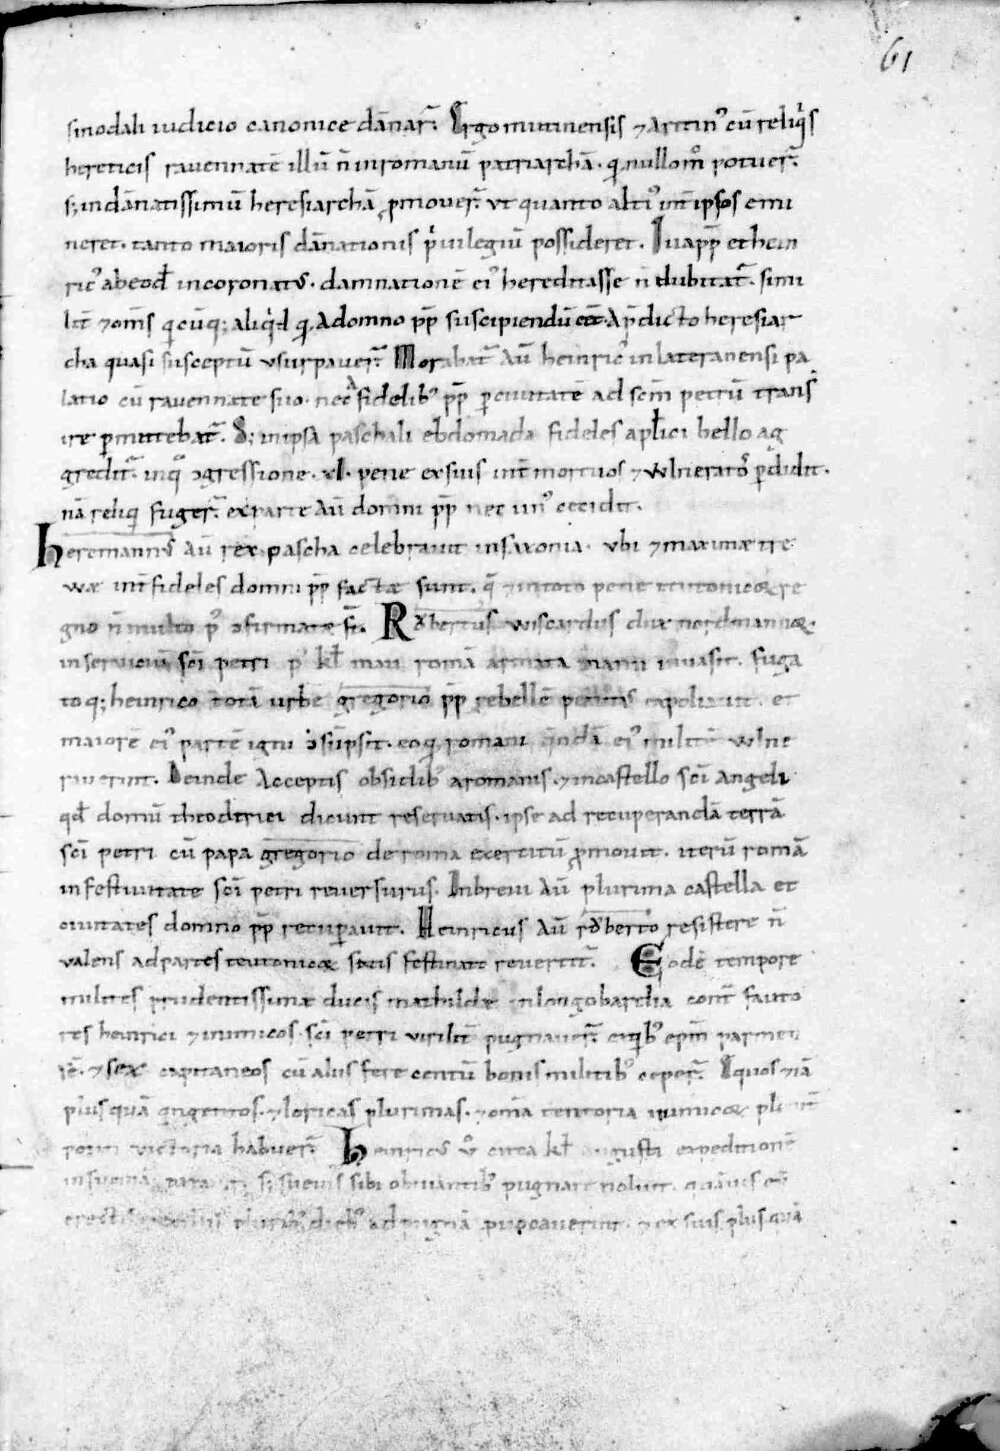 61
sinodali iudicio canonice dānar̄. Ergo mutinensis ⁊ aretin᾿ cū reliq̇s
hereticis rauennatē illū n̄ in romanū patriarchā · q nullom̊ potuer̄
sꝫ in dānatissimū heresiarchā ꝓmouer̄ ut quanto alti᾿ int̄ ipsos emi
neret · tanto maioris dānationis ṗuilegiū possideret. Iua pp̄ et hein
ric᾿ ab eod̄ incoronat᾿ · damnationē ei᾿ hereditasse n̄ dubitat̄ · simi
lit̄ ⁊ om̄s q cūqꝫ aliq̇d q A domno pp̄ suscipiendū A p̄dicto heresiar
cha quasi susceptū usurpauer̄. Morabat̄ aū heinric᾿ in lateranensi pa
latio cū rauennate suo · nec a fidelib᾿ pp̄ ꝑ ciuitatē ad scm̄ petrū trans
ire ꝑmittebat̄. Sꝫ in ipsa paschali ebdomada fideles apłici bello ag
gredit̄ · in q̄ ↄgressione · xl · pene ex suis int̄ mortuos ⁊ uulnerat᾿ ꝑdidit ·
nā reliqi fuger̄ · ex parte aū domni pp̄ nec un᾿ cecidit.
Heremann᾿ aū rex pascha celebrauit in saxonia · ubi ⁊ maximæ tre
uuæ int̄ fideles domni pp̄ factæ sunt. q̄ ⁊ in toto pene teutonicoꝝ re
gno n̄ multo p᾿ ↄfirmatæ st̄. Rǒbertus wiscardus dux nordmannoꝝ ·
in seruiciū sc̄i petri p᾿ kł maii romā armata manu inuasit · fuga
toqꝫ heinrico totā urbē gregorio pp̄ rebellē penit᾿ expoliauit · et
maiorē ei᾿ partē igni ↄsūpsit · eo q romani q̄ndā ei᾿ militē uulne
rauerint. Deinde Acceptis obsidib᾿ a romanis · ⁊ in castello sc̄i angeli
qd̄ domū theodrici dicunt reseruatis · ipse ad recuperandā terrā
sc̄i petri cū papa gregorio de roma exercitū ꝓmouit · iterū romā
in festiuitate sc̄i petri reuersurus. In breui Aū plurima castella et
ciuitates domno pp̄ recuꝑauit. Heinricus Aū rǒberto resistere n̄
ualens ad partes teutonicoꝝ festinato reuertit̄. Eodē tempore
milites prudentissimæ ducis mathildæ in longobardia cont̄ fauto
res heinrici ⁊ inimicos sc̄i petri uirilit̄ pugnauer̄ · eqib᾿ ep̄m parmen
sē · ⁊ sex capitaneos cū aliis fere centū bonis militib᾿ ceper̄. Equos ⁊iā
plus quā qngentos · ⁊ loricas plurimas · ⁊ om̄ia tentoria inimicoꝝ
potiti uictoria habuer̄. Heinric᾿ u᾿ circa kł augusti expeditionē
in sueuiā parauit sꝫ sueuis sibi obuiantib᾿ pugnare noluit · quāuis eū
plurib᾿ dieb᾿ ad pugnā ꝓuocauerint · ⁊ ex suis plus quā